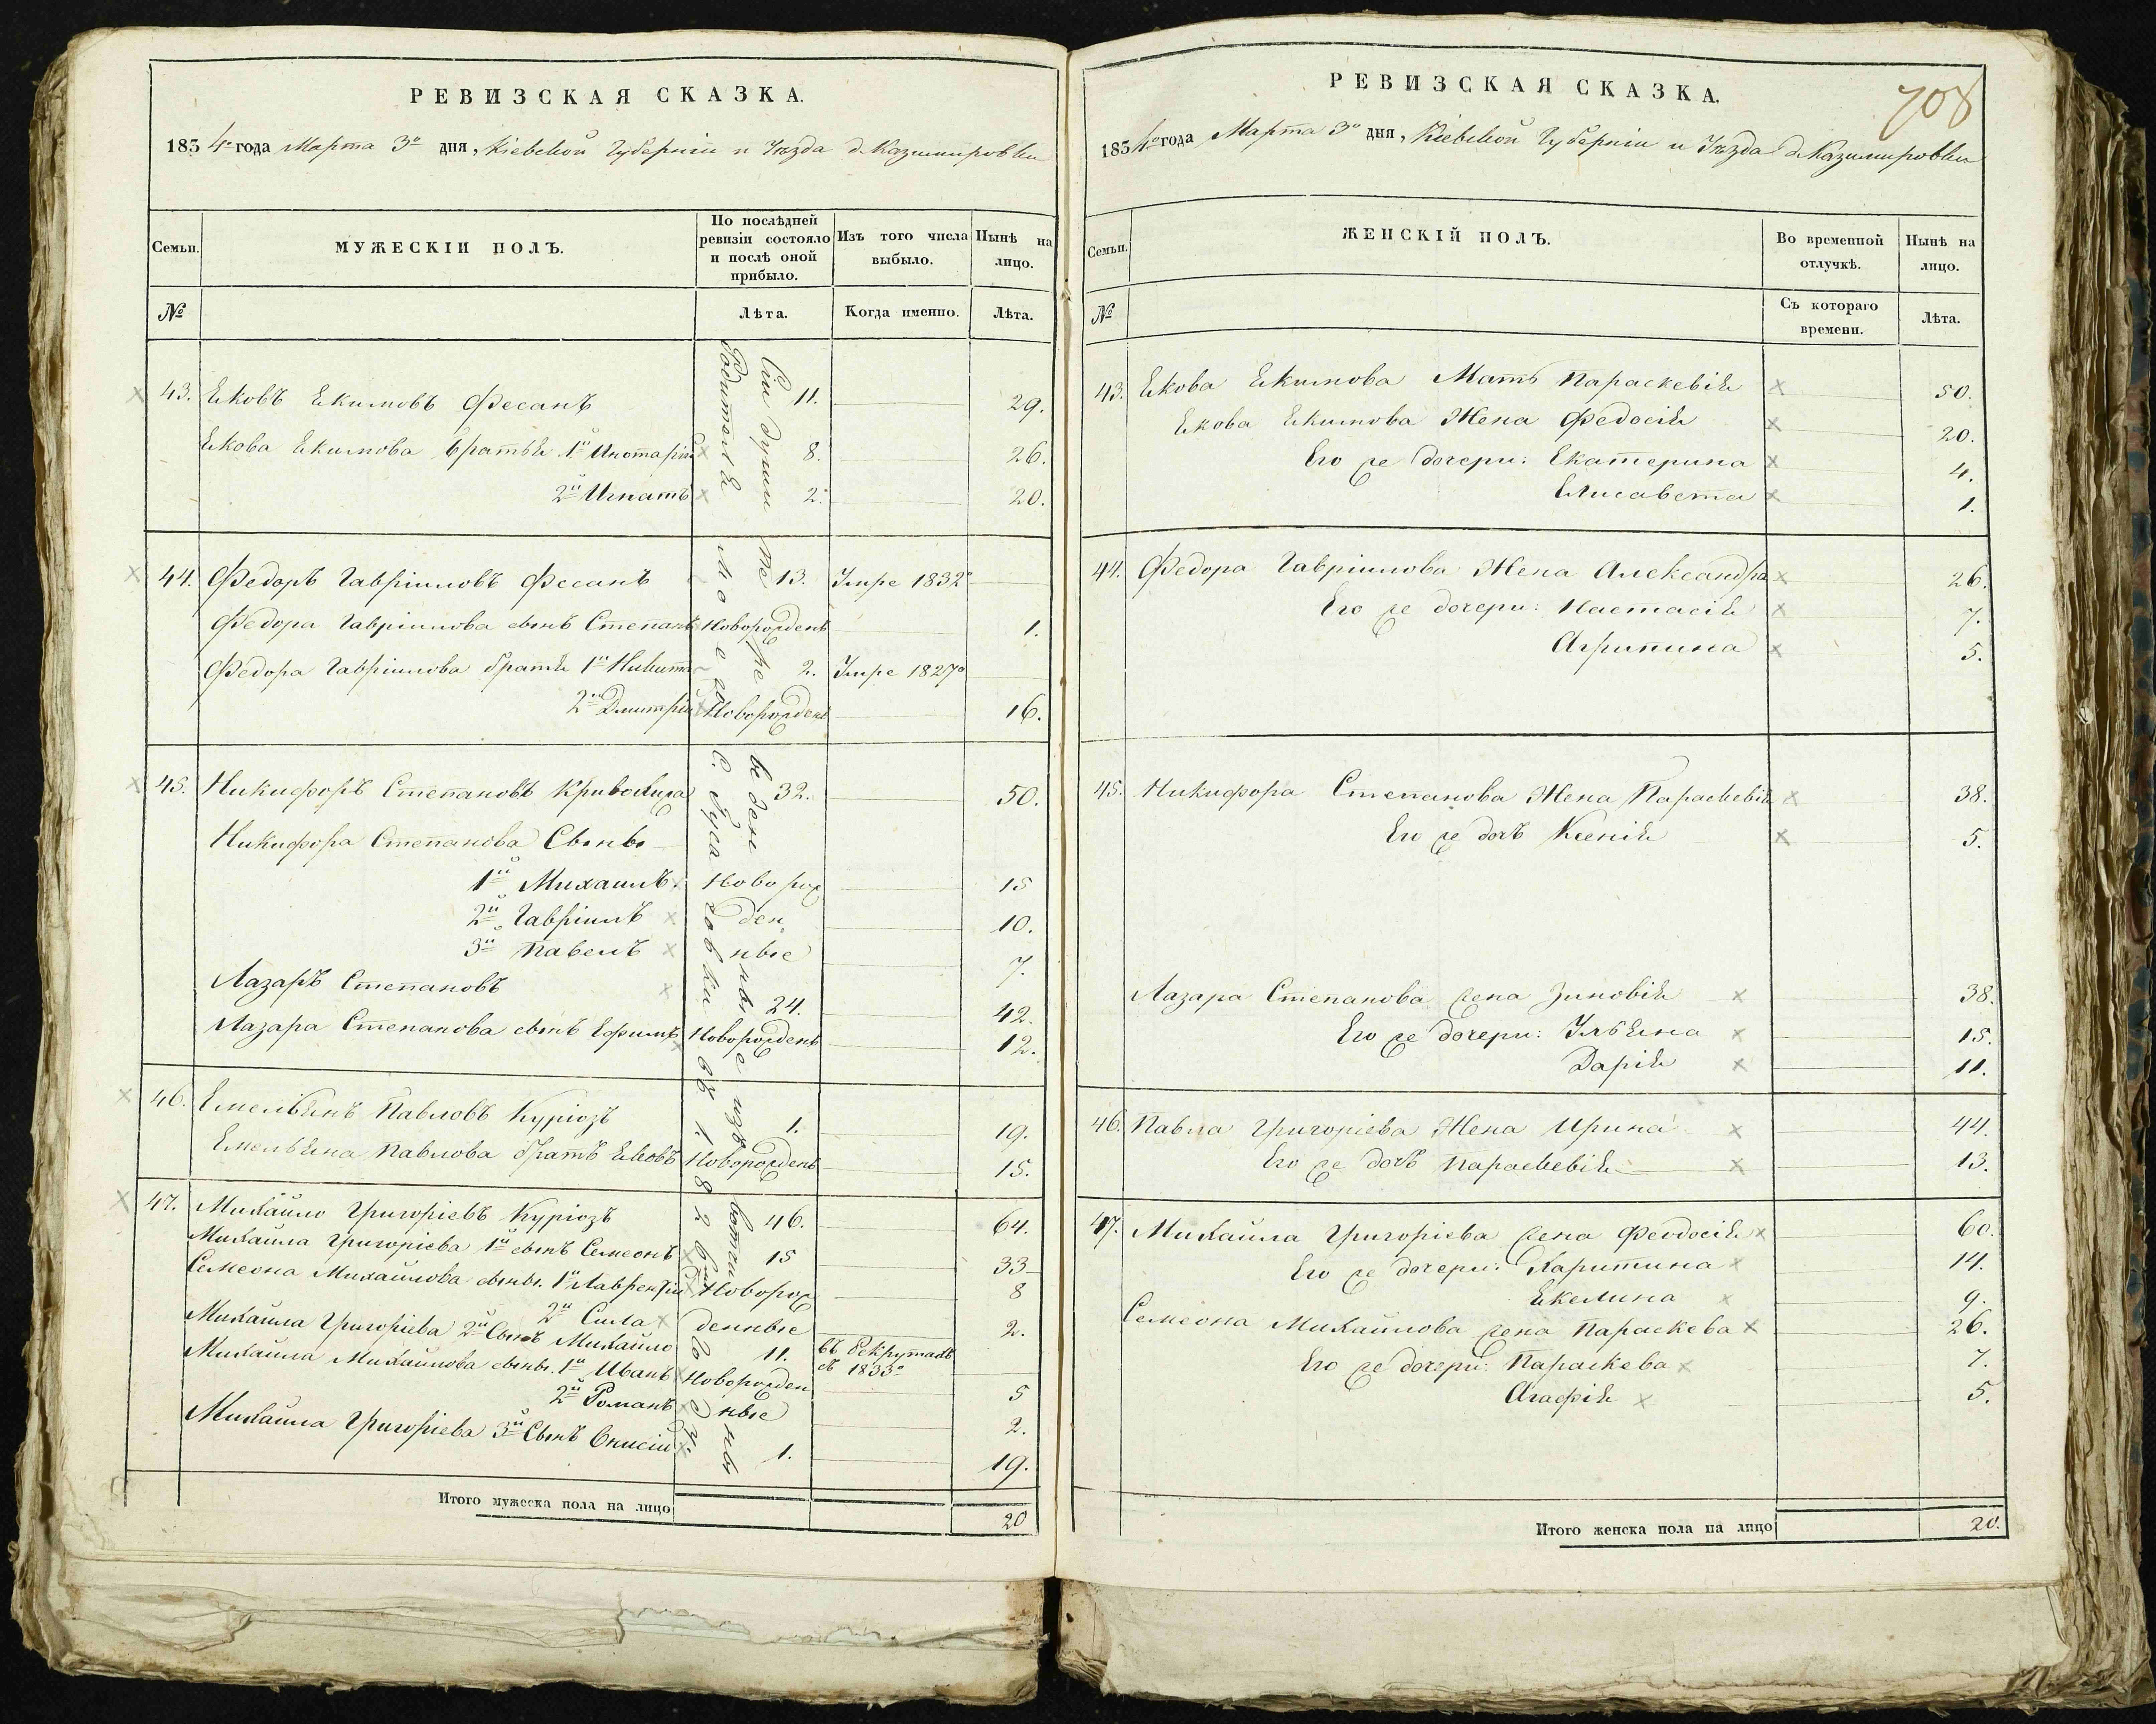 РЕВИЗСКАЯ СКАЗКА.
1834го года Марта 3го дня, Кіевской Губерніи и Уѣзда д. Казимировки
Семьи. МУЖЕСКІЙ ПОЛЪ. По послѣдней ревизіи состояло и послѣ оной прибыло. Изъ того числа выбыло. Нынѣ на лицо.
№ Лѣта. Когда именно. Лѣта.
43. Яковъ Якимовъ Фесанъ 11. 29.
Якова Якимова братья 1й 8. 26.
2й Игнатъ 2. 20.
44. Федоръ Гавріиловъ Фесанъ 13. Умре 1832го
Федора Гавріилова сынъ Степанъ Новорожденъ 1.
Федора Гавріилова братья 1й Никита 2. Умре 1827го
2й Дмитрій Новорожденъ 16.
45. Никифоръ Степановъ Кривохижа 32. 50.
Никифора Степанова Сыны
1й Михаилъ Новорож 15
2й Гавріилъ ден 10.
3й Павелъ ные 7.
Лазаръ Степановъ 24. 42.
Лазара Степанова сынъ Ефимъ Новорожденъ 12.
46. Емельянъ Павловъ Куріозъ 1. 19.
Емельяна Павлова братъ Яковъ Новорожденъ 15.
47. Михайло Григоріевъ Куріозъ 46. 64.
Михайла Григоріева 1й сынъ Семеонъ 15 33
Семеона Михайлова сыны. 1й Лаврентій Новорож 8
2й Сила денные 2.
Михайла Григоріева 2й Сынъ Михайло 11. въ Рекрутахъ съ 1833го
Михайла Михайлова сыны. 1й Иванъ Новорожден 5
2й Романъ ные 2.
Михайла Григоріева 3й Сынъ Онисій 1. 19.
Сіи души переведены изъ вотчины
Родителя моего с. Гусаковки въ 182 году
Итого мужеска пола на лицо 20
РЕВИЗСКАЯ СКАЗКА.
708
1834го года Марта 3го дня, Кіевской Губерніи и Уѣзда д. Казимировки
Семьи. ЖЕНСКІЙ ПОЛЪ. Во временной отлучкѣ. Нынѣ на лицо.
№ Съ котораго времени. Лѣта.
43. Якова Якимова Мать Параскевія 50.
Якова Якимова Жена Федосія 20.
Его же дочери: Екатерина 4.
Елисавета 1.
44. Федора Гавріилова Жена Александра 26.
Его же дочери: Настасія 7.
Агрипина 5.
45. Никифора Степанова Жена Параскевія 38.
Его же дочь Ксенія 5.
Лазара Степанова жена Зиновія 38.
Его же дочери: Ульяна 15.
Дарія 11.
46. Павла Григоріева Жена Ирина 44.
Его же дочь Параскевія 13.
47. Михайла Григоріева жена Феодосія 60.
Его же дочери: Харитина 14.
Якелина 9.
Семеона Михайлова жена Параскева 26.
Его же дочери: Параскева 7.
Агафія 5.
Итого женска пола на лицо 20.